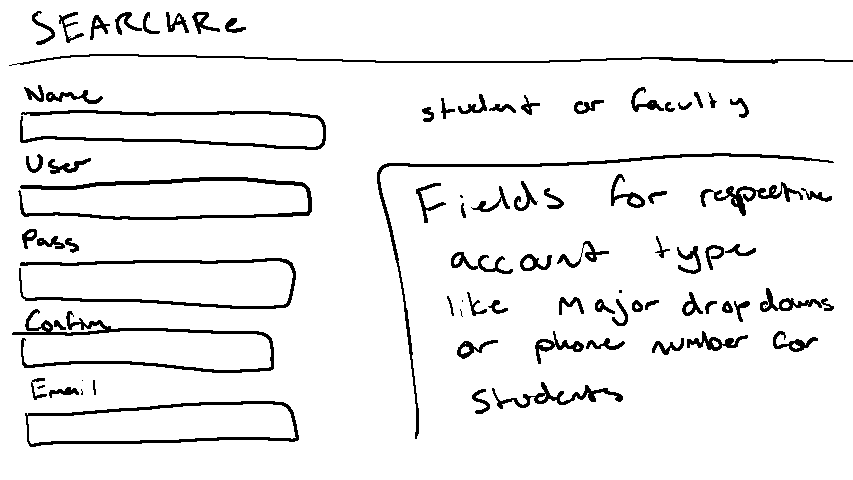 SEARCHRe
Name
User
Pass
Confirm
Email
student or faculty
Fields for respective
account type
like Major dropdowns
or phone number for
students